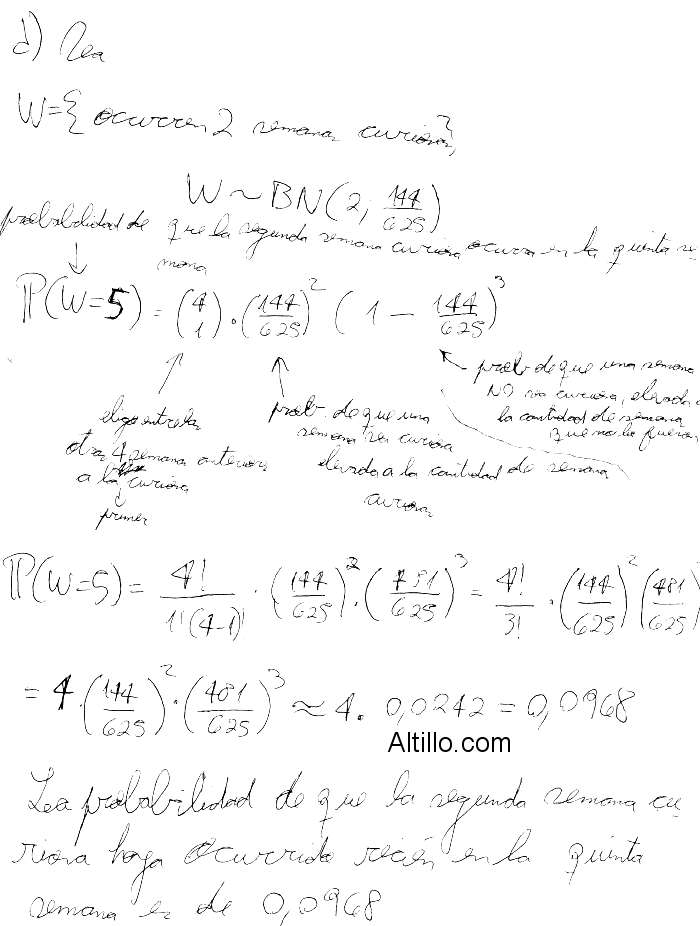 d) Sea
W={ocurren 2 semanas curiosas}
W ~ BN(2; 144/625)
probabilidad de que la segunda semana curiosa ocurra en la quinta se-
mana
ℙ(W=5) = (4 1) · (144/625)^2 (1 - 144/625)^3
elijo entre las
otras 4 semanas anteriores
a la curiosa
primer
prob. de que una
semana sea curiosa
elevada a la cantidad de semanas
curiosas
prob de que una semana
NO sea curiosa, elevada a
la cantidad de semanas
que no lo fueron
ℙ(W=5) = 4!/1!(4-1)! · (144/625)^2 · (481/625)^3 = 4!/3! · (144/625)^2 (481/625)
= 4 · (144/625)^2 · (481/625)^3 ≈ 4. 0,0242 = 0,0968
Altillo.com
La probabilidad de que la segunda semana cu
riosa haya ocurrido recién en la quinta
semana es de 0,0968